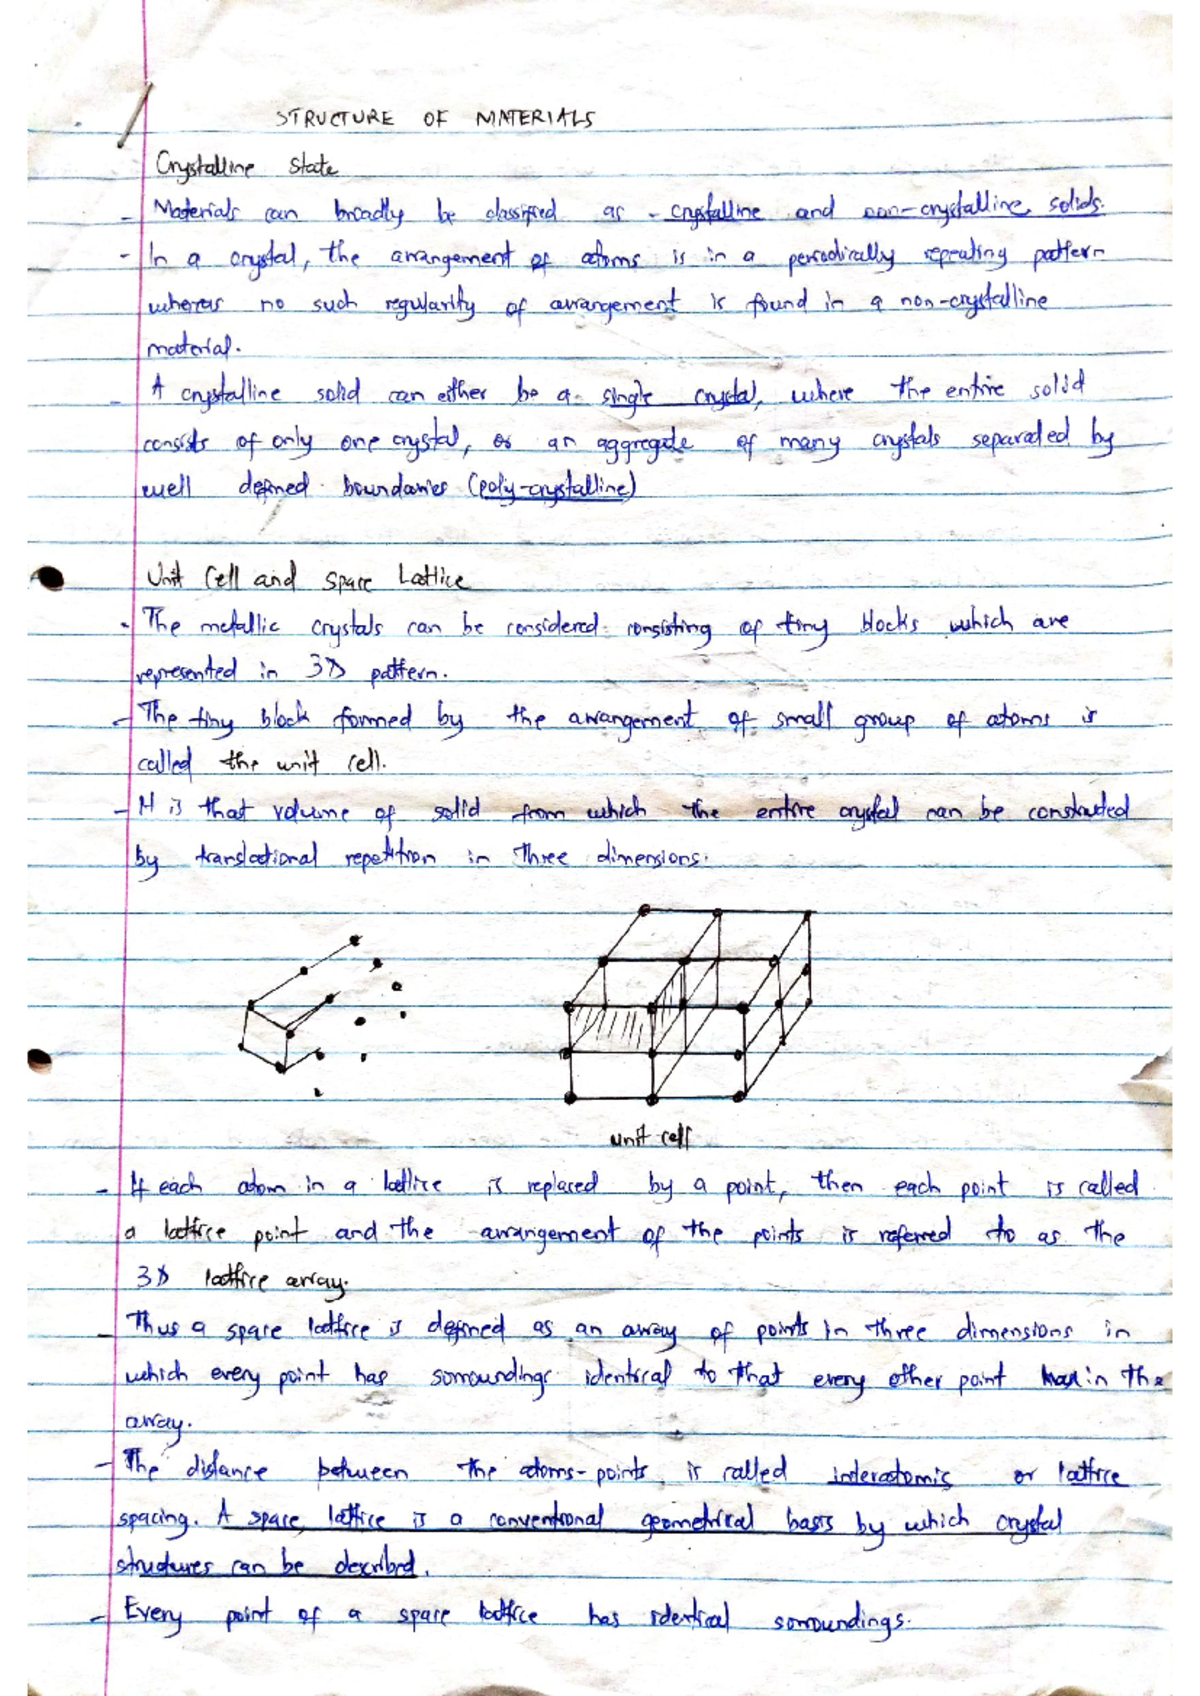 STRUCTURE OF MATERIALS
Crystalline State
- Materials can broadly be classified as - crystalline and non-crystalline solids.
- In a crystal, the arrangement of atoms is in a periodically repeating pattern
whereas no such regularity of arrangement is found in a non-crystalline
material.
- A crystalline solid can either be a single crystal, where the entire solid
consists of only one crystal, or an aggregate of many crystals separated by
well defined boundaries (poly-crystalline)
Unit Cell and Space Lattice
- The metallic crystals can be considered consisting of tiny blocks which are
represented in 3D pattern.
- The tiny block formed by the arrangement of small group of atoms is
called the unit cell.
- It is that volume of solid from which the entire crystal can be constructed
by translational repetition in three dimensions.
unit cell
- If each atom in a lattice is replaced by a point, then each point is called
a lattice point and the arrangement of the points is referred to as the
3D lattice array.
- Thus a space lattice is defined as an array of points in three dimensions in
which every point has sorroundings identical to that every other point in the
array.
- The distance between the atoms-points is called interatomic or lattice
spacing. A space lattice is a conventional geometrical basis by which crystal
structures can be described.
- Every point of a space lattice has identical sorroundings.